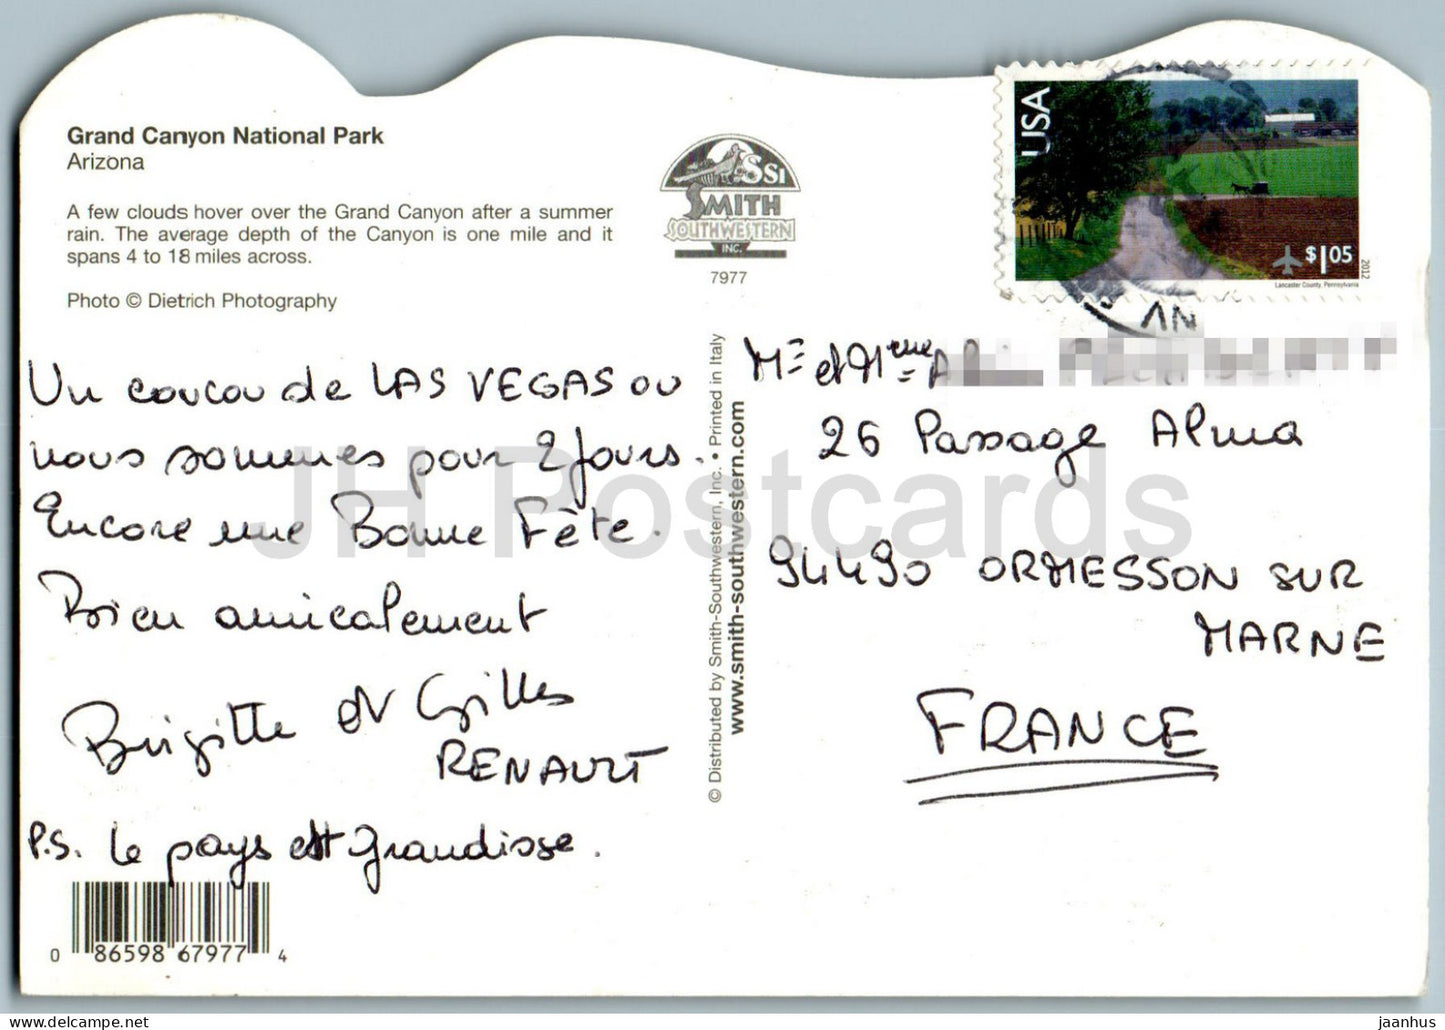 Grand Canyon National Park
Arizona
A few clouds hover over the Grand Canyon after a summer
rain. The average depth of the Canyon is one mile and it
spans 4 to 18 miles across.
Photo © Dietrich Photography
SSI
SMITH
SOUTHWESTERN
INC.
7977
USA
$1.05
2012
Lancaster County, Pennsylvania
NV
Un coucou de LAS VEGAS ou
nous sommes pour 2 jours.
Encore une Bonne Fête.
Bien amicalement
Brigitte et Gilles
RENAULT
P.S. Le pays est grandisse.
0 86598 67977 4
© Distributed by Smith-Southwestern, Inc. • Printed in Italy
www.smith-southwestern.com
Mr et Mme
26 Passage Alma
94490 ORMESSON SUR
MARNE
FRANCE
JH Postcards
jaanhus - delcampe.net